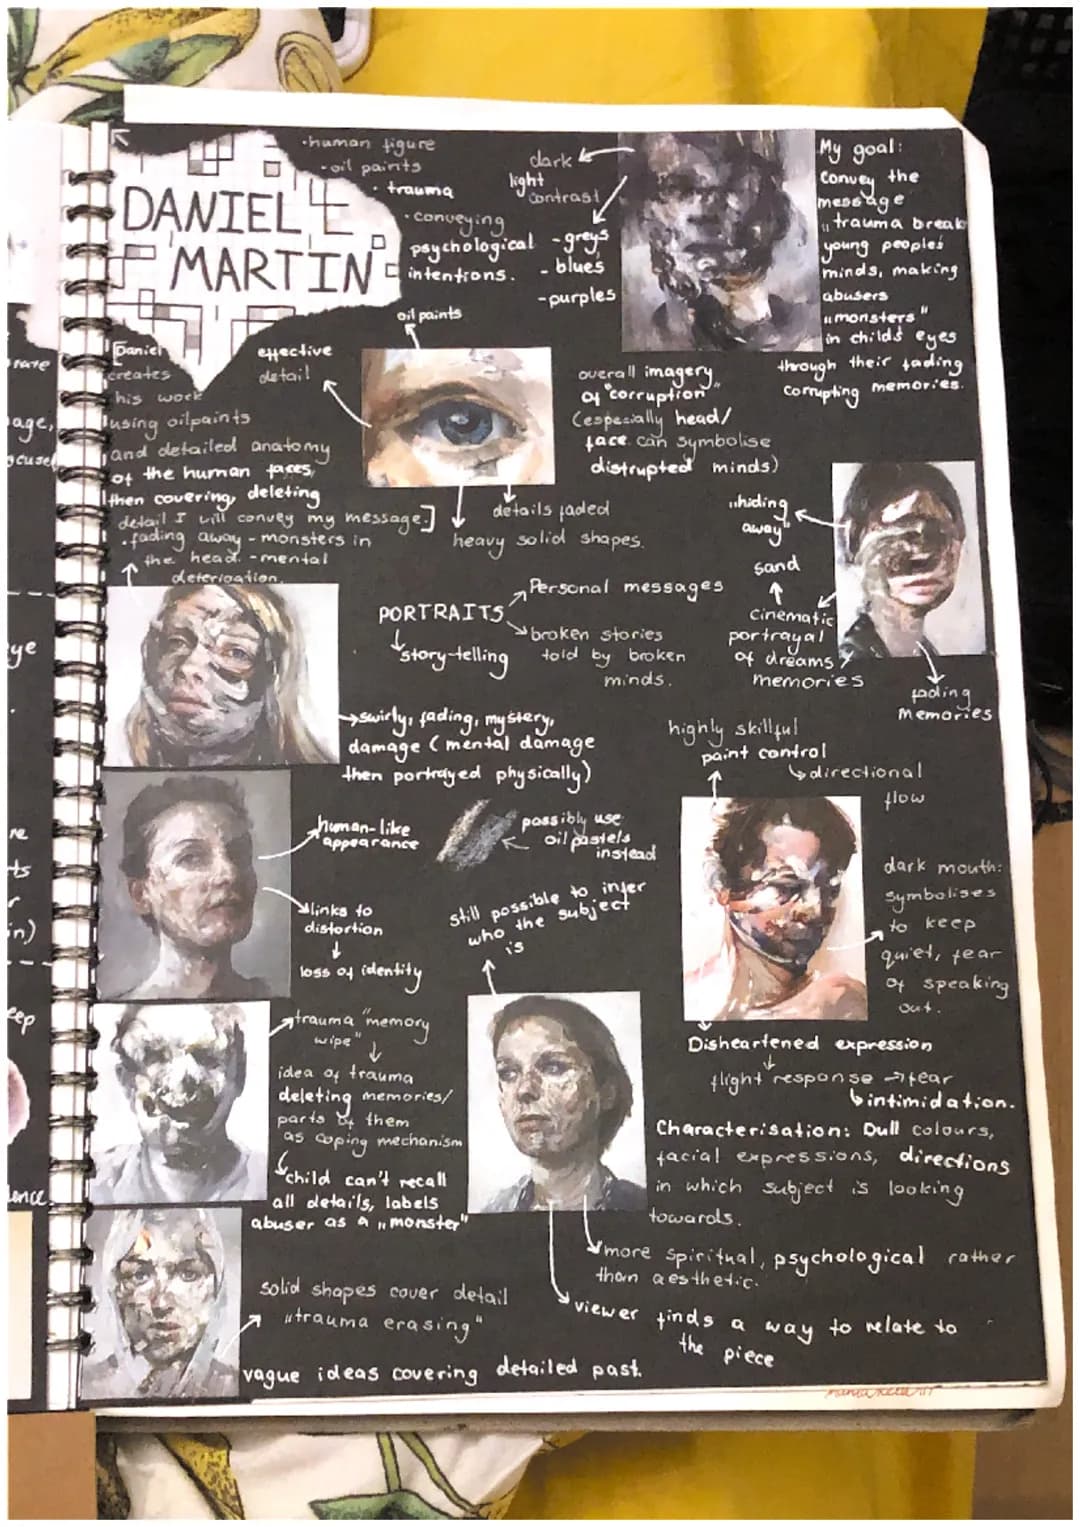 DANIEL
MARTIN
·human figure
·oil paints
·trauma
·conveying
psychological
intentions.
dark
light
contrast
-greys
-blues
-purples
My goal:
Convey the
message
„trauma break
young peoples
minds, making
abusers
„monsters"
in child's eyes
through their fading
corrupting memories.
oil paints
effective
detail
[Daniel
creates
his work
using oilpaints
and detailed anatomy
of the human faces,
then covering, deleting
detail I will convey my message.]
·fading away - monsters in
the head. - mental
deterioation.
overall imagery
of "corruption"
(especially head/
face can symbolise
distrupted minds)
details faded
heavy solid shapes.
„hiding
away"
sand
cinematic
portrayal
of dreams/
memories
fading
Memories
PORTRAITS
Personal messages
broken stories
told by broken
minds.
story-telling
swirly, fading, mystery,
damage (mental damage
then portrayed physically)
highly skillful
paint control
directional
flow
human-like
appearance
possibly use
oil pastels
instead
links to
distortion
loss of identity
still possible to infer
who the subject
is
dark mouth:
symbolises
to keep
quiet, fear
of speaking
out.
trauma "memory
wipe"
idea of trauma
deleting memories/
parts of them
as coping mechanism
child can't recall
all details, labels
abuser as a „monster"
Disheartened expression
flight response → fear
intimidation.
Characterisation: Dull colours,
facial expressions, directions
in which subject is looking
towards.
more spiritual, psychological rather
than aesthetic.
viewer finds a way to relate to
the piece
solid shapes cover detail
„trauma erasing"
vague ideas covering detailed past.
rate
age,
ye
re
ts
r
in)
eep
lence